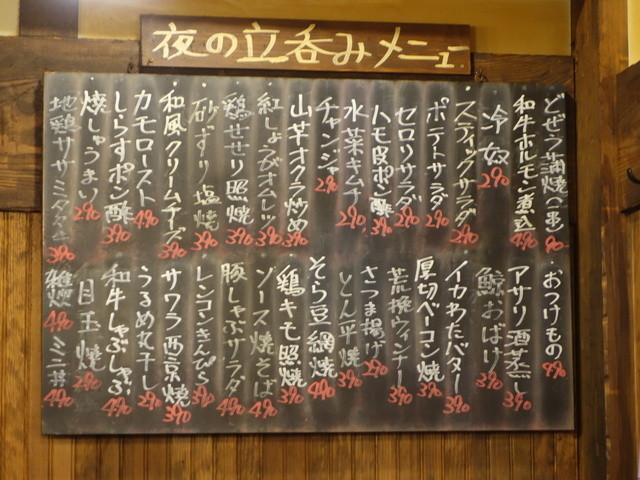 夜の立呑みメニュー
どぜう蒲焼(一串)
和牛ホルモン煮込 490
冷奴 290
スティックサラダ 390
ポテトサラダ 290
セロリサラダ 290
ハモ皮ポン酢 390
水菜キムチ 290
チャンジャ 290
山芋オクラ炒め 390
紅しょうがオムレツ 390
鶏せせり照焼 390
砂ずり塩焼 390
和風クリームチーズ 390
カモロースト 490
しらすポン酢 390
焼しゅうまい 290
地鶏ササミ 390
おつけもの
アサリ酒蒸し 390
鯨おばけ 390
イカわたバター 390
厚切ベーコン焼 390
荒挽ウィンナー 390
さつま揚げ 290
とん平焼 390
そら豆網焼 490
鶏キモ照焼 390
ソース焼そば 490
豚しゃぶサラダ 490
レンコンきんぴら 390
サワラ西京焼 390
うるめ丸干し 290
和牛しゃぶしゃぶ 490
目玉焼 290
雑煮 490 ミニ丼 490